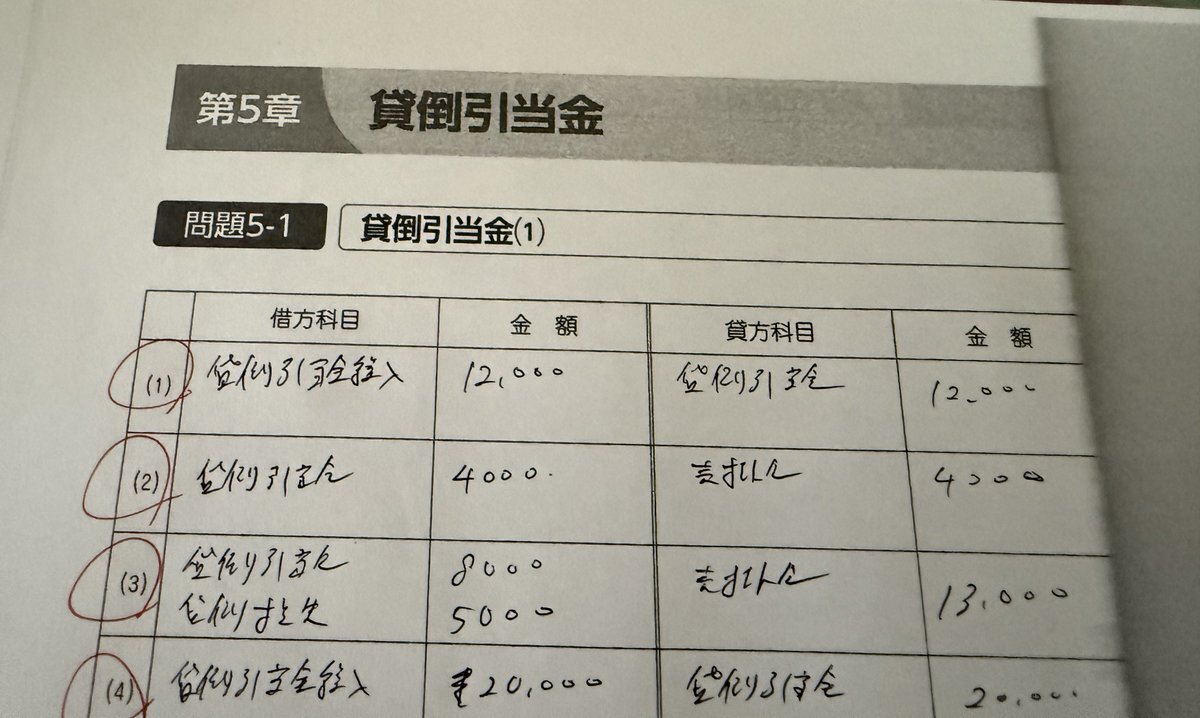 第5章 貸倒引当金
問題5-1 貸倒引当金(1)
借方科目 金 額 貸方科目 金 額
(1) 貸倒引当金繰入 12,000 貸倒引当金 12,000
(2) 貸倒引当金 4000 売掛金 4000
(3) 貸倒引当金 8000 売掛金 13,000
貸倒損失 5000
(4) 貸倒引当金繰入 20,000 貸倒引当金 20,000